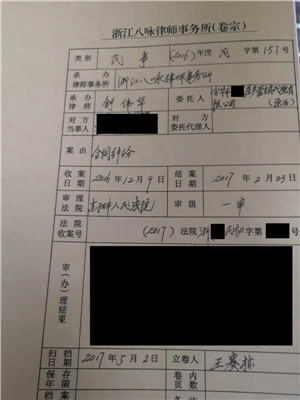 浙江八咏律师事务所(卷宗)
类别 民事 (2016)年度 民 字第 151 号
承办律师事务所 浙江八咏律师事务所
承办律师 委托人 有限公司(原告)
对方当事人 对方委托代理人
案由 合同纠纷
收案日期 2016年12月9日 结案日期 2017年2月23日
审理法院 人民法院 审级 一审
法院收案号 (2017) 法院 浙 字第 号
审(办)理结果
归档日期 2017年5月2日 立卷人 王
保存年限 卷内页数